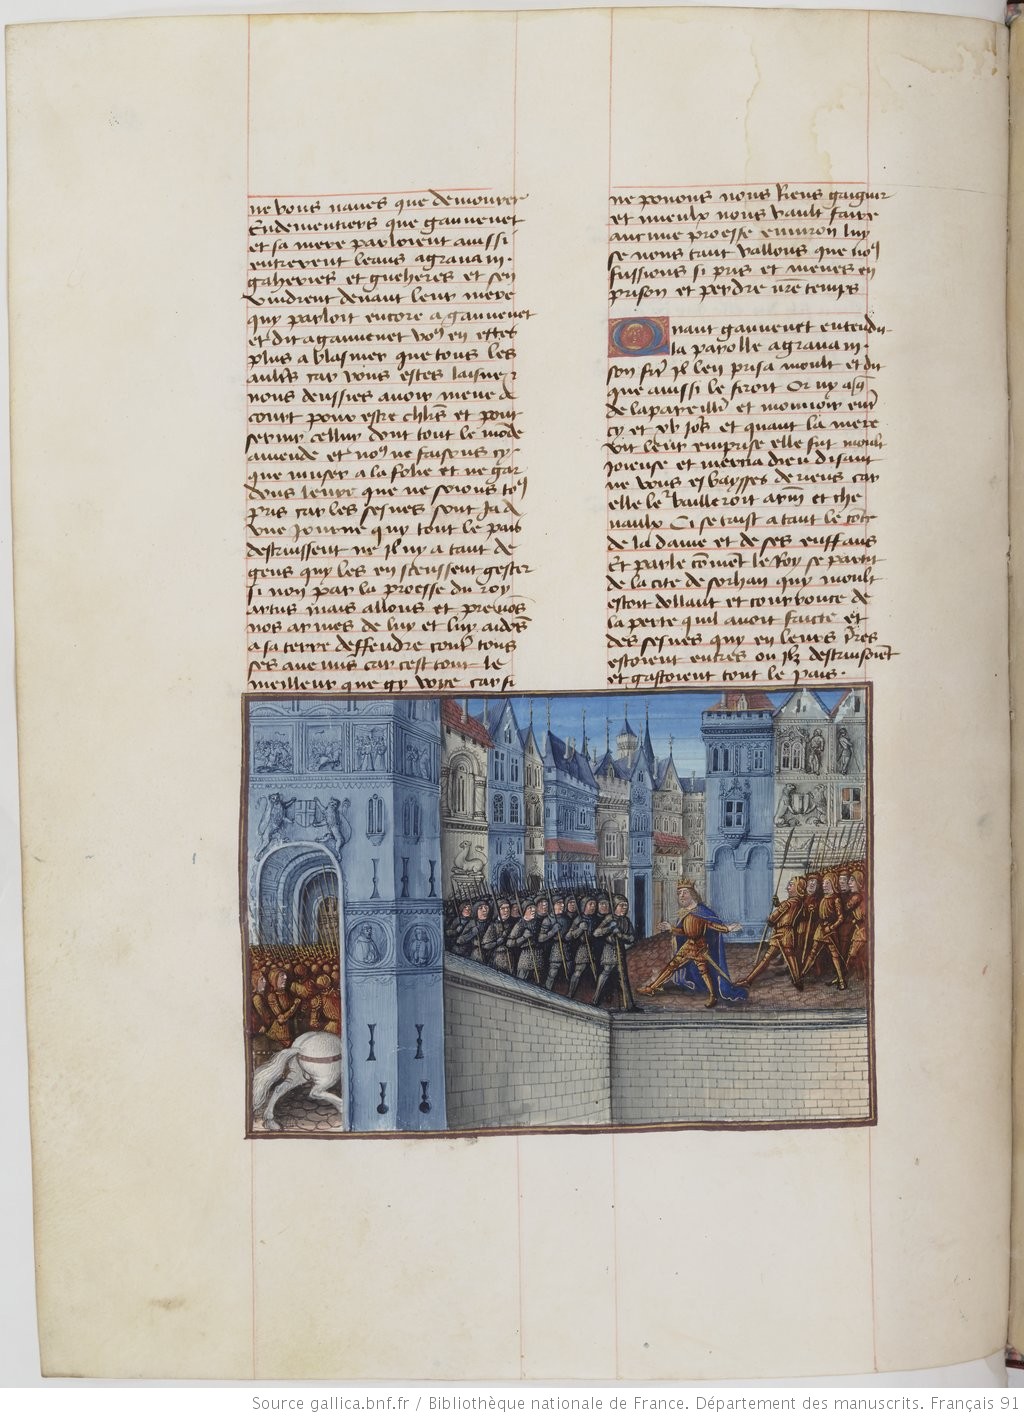 ne vous naves que demourer
Endementiers que gauvenet
et sa mere parloient aussi
entrerent leans agravain .
gaheries et gueheres et sen
vindrent devant leur mere
quy parloit encore a gauvenet
et dit a gauvenet vo9 en estes
plus a blasmer que tous les
aultrs car vous estes laisne z
nous deussies avoir mene a
court pour estre chlrs et pour
servir celluy dont tout le mode
amende et no9 ne faisons cy
que muser a la folie et ne gar
dons leure que ne soions to9
pris car les sesnes sont ja a
une journee quy tout le pais
destruissent ne il ny a tant de
gens quy les en sceussent getter
si non par la proesse du roy
artus mais allons et prenos
nos armes de luy et luy aidos
a sa terre deffendre contr tous
ses anemis car cest tout le
meilleur que gy voye car si
ne pouons nous riens gaignier
et mieulx nous vault faire
aucune proesse environ luy
se nous tant vallons que no9
fussions si pris et menes en
prison et perdre nre temps
Quant gauvenet entendit
la parolle agravain .
son frr il len prisa moult et dit
que aussi le feroit Or ny a q
de lapareillr et monvoir entr
cy et jours et quant la mere
vit leur emprise elle fut moult
joieuse et mercia dieu disant
ne vous esbaysses de riens car
elle le bailleroit arm et che
vaulx Ci se taist a tant le cote
de la dame et de ses enffans
Et parle coment le Roy se partit
de la cite de sorhan quy moult
estoit dollant et courrouce de
la perte quil avoit faicte et
des sesnes quy en leurs trres
estoient entres ou ilz destruisoiet
et gastoient tout le pais .
Source gallica.bnf.fr / Bibliothèque nationale de France. Département des manuscrits. Français 91